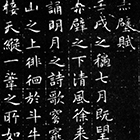 赤壁賦
壬戌之秋七月既望
赤壁之下清風徐來
誦明月之詩歌窈窕
山之上徘徊於斗牛
接天縱一葦之所如